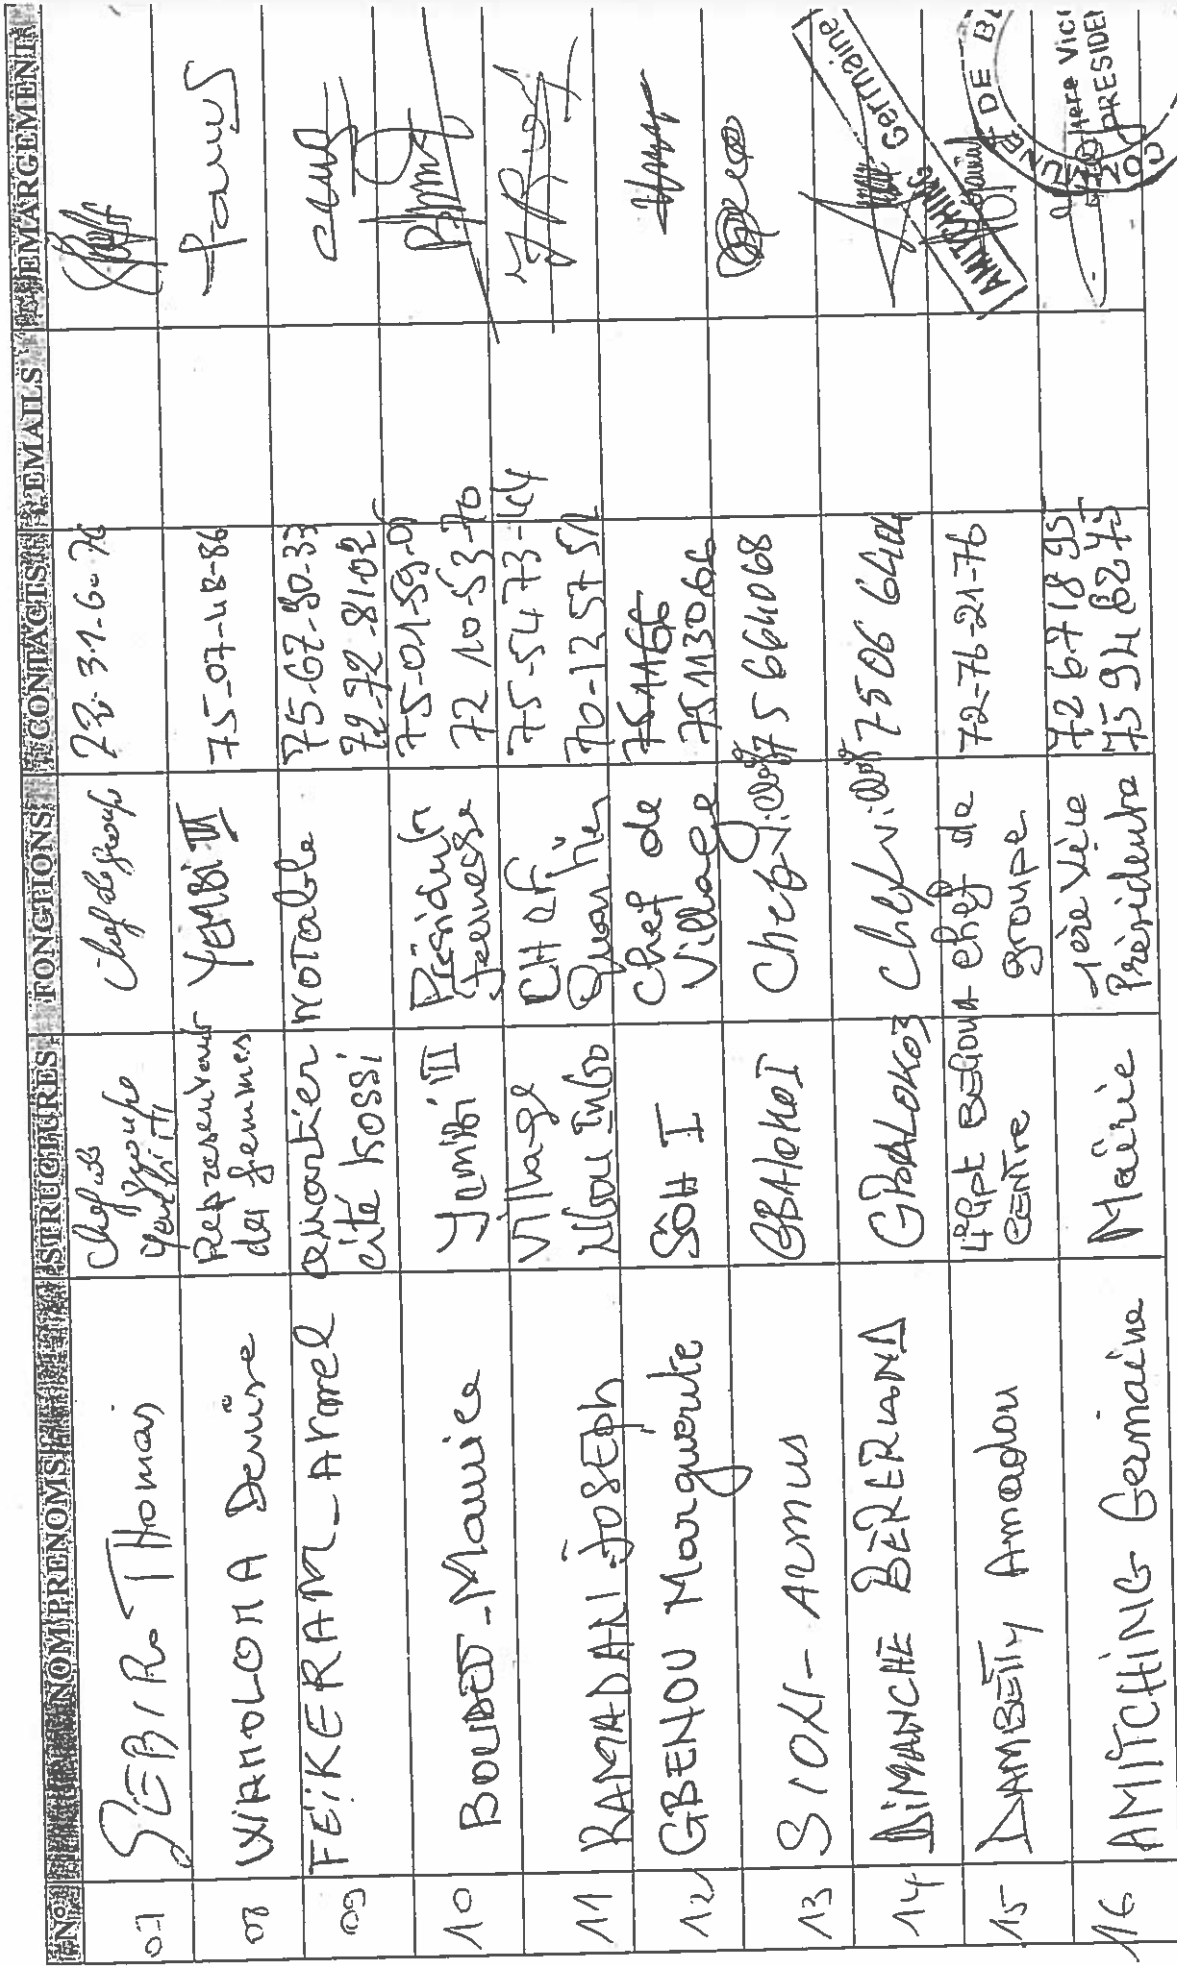 N° NOM PRENOMS STRUCTURES FONCTIONS CONTACTS EMAILS EMARGEMENT
07 Thomas Chef de groupe Chef de groupe
08 WANOLOMA Denise Representante des femmes YEMBI III 75-07-48-86
09 FEIKERAM-Armel quartier cité Kossi NOTable 75-67-90-33
72-72-8102
10 Yembi III Président Jeunesse 75-01-59-01
72 10-53-70
11 RAMADAN-JOSEph Village CHef Quartier 75-5473-44
70-1257-51
12 GBENOU Marguerite SôH I Chef de Village 751166
75113066
13 GBALOKOI Chef village 75664068
14 DIMANCHE BERERIAND GBALOKO3 Chef village 7506 6404
15 DAMBETTY Amadou 4è Gpt BEGOUA CENTRE chef de groupe 72-76-21-76
16 AMITCHING Germaine Mairie 1ère Vice Présidente 72671895
75948275
AMITCHING Germaine
COMMUNE DE B
1ère Vice
PRESIDE